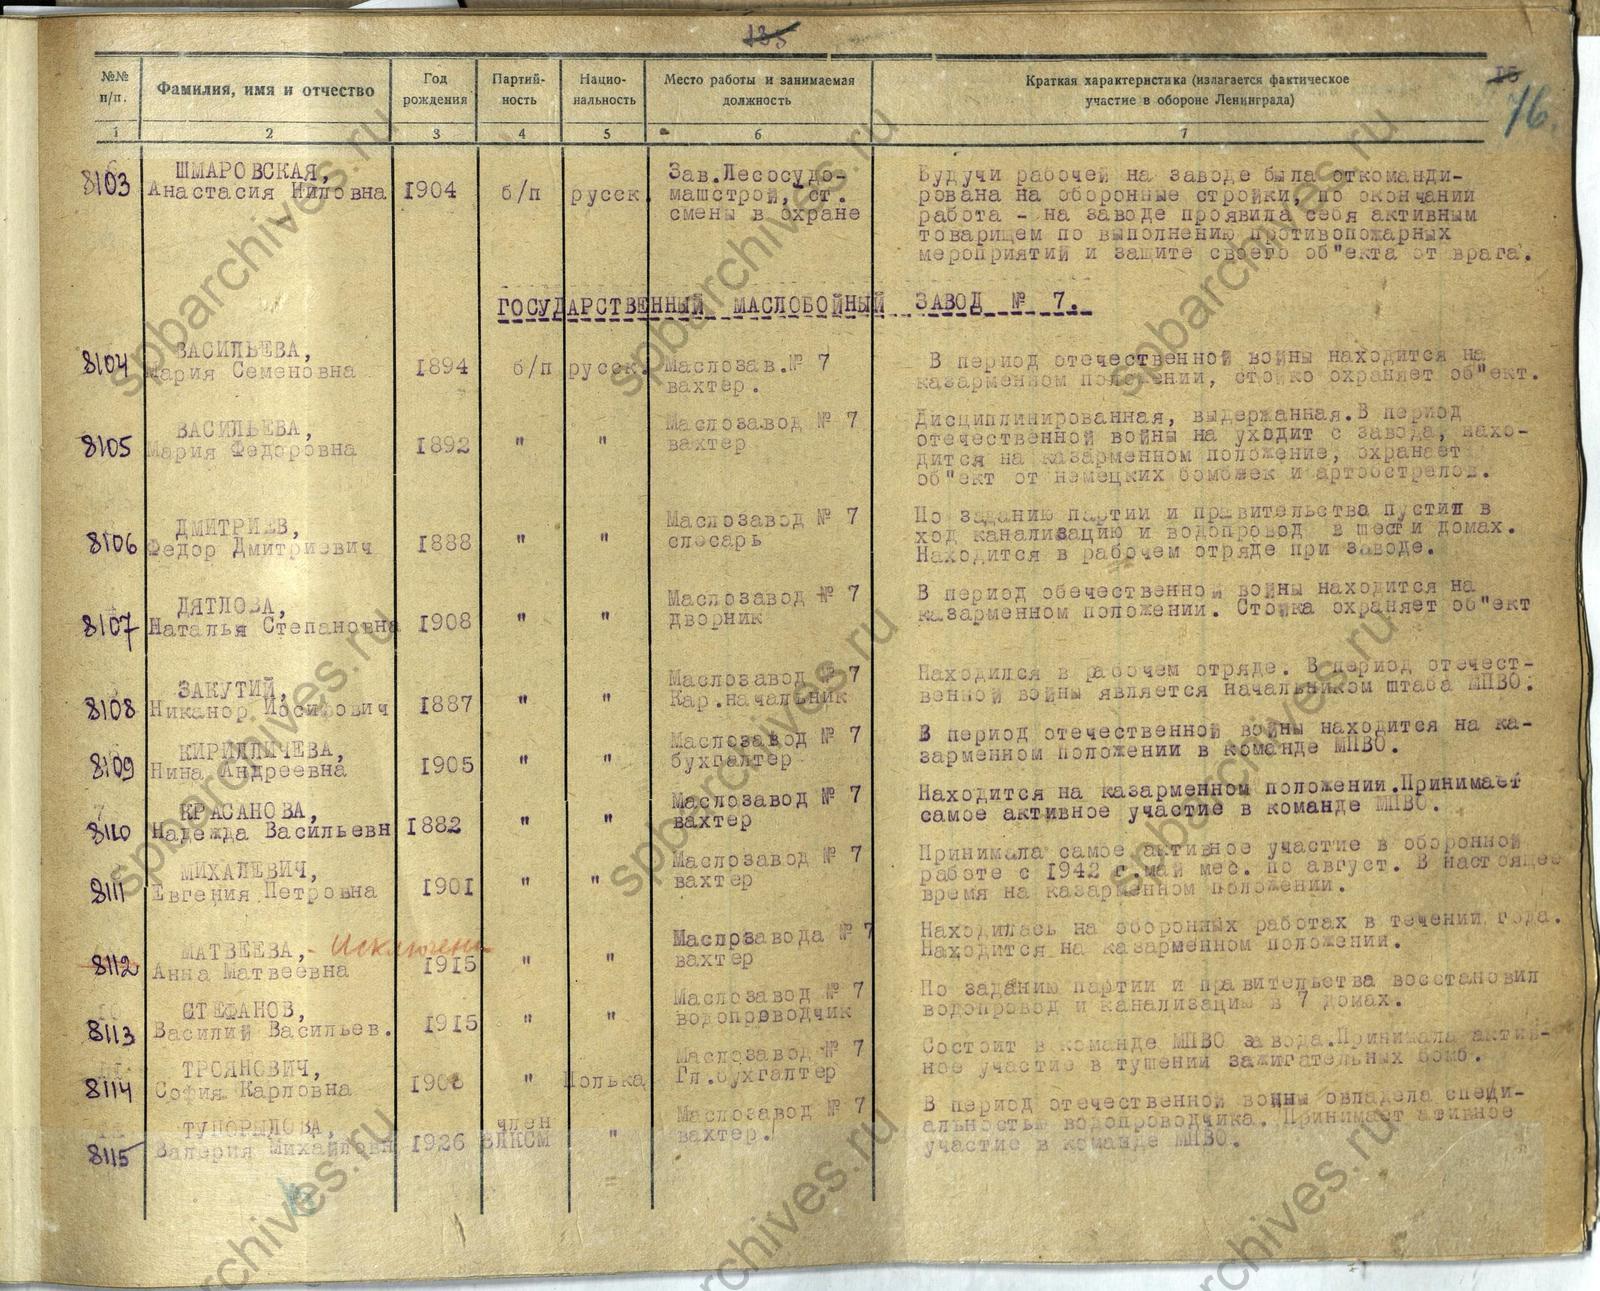 135
№№ п/п. Фамилия, имя и отчество Год рождения Партий-ность Нацио-нальность Место работы и занимаемая должность Краткая характеристика (излагается фактическое участие в обороне Ленинграда)
15
76.
1 2 3 4 5 6 7
8103 ШМАРОВСКАЯ,
Анастасия Ниловна 1904 б/п русск.
Зав.Лесосудо-
машстрой, ст.
смены в охране
Будучи рабочей на заводе была откоманди-
рована на оборонные стройки, по окончании
работа - на заводе проявила себя активным
товарищем по выполнению противопожарных
мероприятий и защите своего об"екта от врага.
ГОСУДАРСТВЕННЫЙ МАСЛОБОЙНЫЙ ЗАВОД № 7.
8104 ВАСИЛЬЕВА,
Мария Семеновна 1894 б/п русск.
Маслозав.№ 7
вахтер.
В период отечественной войны находится на
казарменном положении, стойко охраняет об"ект.
8105 ВАСИЛЬЕВА,
Мария Федоровна 1892 " "
Маслозавод № 7
вахтер
Дисциплинированная, выдержанная.В период
отечественной войны на уходит с завода, нахо-
дится на казарменном положение, охранает
об"ект от немецких бомбжек и артобстрелов.
8106 ДМИТРИЕВ,
Федор Дмитриевич 1888 " "
Маслозавод № 7
слесарь
По заданию партии и правительства пустил в
ход канализацию и водопровод в шести домах.
Находится в рабочем отряде при заводе.
8107 ДЯТЛОВА,
Наталья Степановна 1908 " "
Маслозавод № 7
дворник
В период обечественной войны находится на
казарменном положении. Стойка охраняет об"ект
8108 ЗАКУТИЙ,
Никанор Иосифович 1887 " "
Маслозавод № 7
Кар.начальник
Находился в рабочем отряде. В период отечест-
венной войны является начальником штаба МПВО.
8109 КИРИЛЛИЧЕВА,
Нина Андреевна 1905 " "
Маслозавод № 7
бухгалтер
В период отечественной войны находится на ка-
зарменном положении в команде МПВО.
8110 КРАСАНОВА,
Надежда Васильевн 1882 " "
Маслозавод № 7
вахтер
Находится на казарменном положении.Принимает
самое активное участие в команде МПВО.
8111 МИХАЛЕВИЧ,
Евгения Петровна 1901 " "
Маслозавод № 7
вахтер
Принимала самое активное участие в оборонной
работе с 1942 г.май мес. по август. В настоящее
время на казарменном положении.
8112 МАТВЕЕВА, - Исключена
Анна Матвеевна 1915 " "
Маслозавода № 7
вахтер
Находилась на оборонных работах в течении года.
Находится на казарменном положении.
8113 СТЕФАНОВ,
Василий Васильев. 1915 " "
Маслозавод № 7
водопроводчик
По заданию партии и правительства восстановил
водопровод и канализацию в 7 домах.
8114 ТРОЯНОВИЧ,
София Карловна 1908 " Полька
Маслозавод № 7
Гл.бухгалтер
Состоит в команде МПВО завода.Принимала актив-
ное участие в тушении зажигательных бомб.
8115 ТУПОРЫЛОВА,
Валерия Михайловн 1926 член ВЛКСМ "
Маслозавод № 7
вахтер.
В период отечественной войны овладела специ-
альностью водопроводчика. Принимает ативное
участие в команде МПВО.
spbarchives.ru